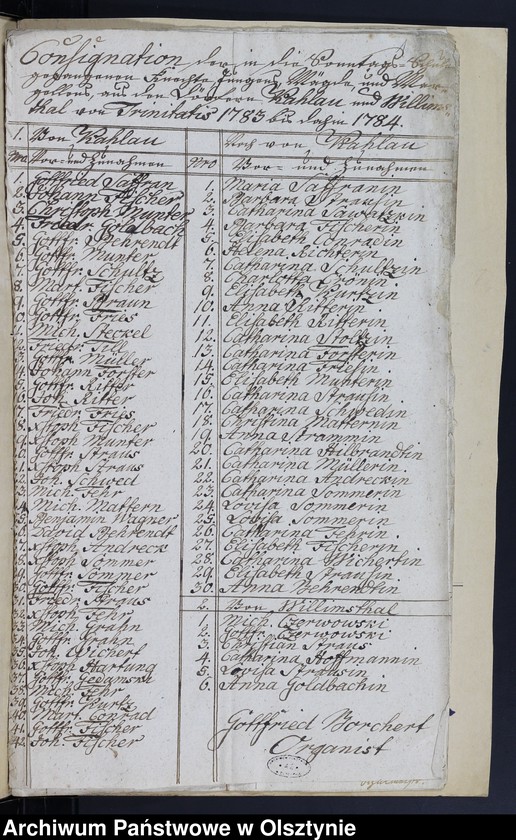 Consignation der in die Sonntags-Schule
gegangenen Knechte, Jungens, Mägde und Mar-
gellens, aus den Dörfern Kahlau und Willims-
thal von Trinitatis 1783 bis dahin 1784.
1. Von Kahlau
Nro Vor- und Zunahmen
1. Gottfried Saffran
2. Johann Fischer
3. Christoph Munter
4. Friedr. Goldbach
5. Gottfr. Behrendt
6. Gottfr. Munter
7. Gottfr. Schultz
8. Mart. Fischer
9. Gottfr. Straun
10. Gottfr. Fries
11. Mich. Steckel
12. Friedr.
13. Gottfr. Müller
14. Johann Forster
15. Gottfr. Ritter
16. Joh. Ritter
17. Friedr. Fries
18. Xstoph Fischer
19. Xstoph Munter
20. Gottfr. Straus
21. Xstoph Straus
22. Joh. Schwed
23. Mich. Fehr
24. Mich. Mattern
25. Benjamin Wagner
26. David Behrendt
27. Xstoph Andreck
28. Xstoph Sommer
29. Gottfr. Sommer
30. Gottfr. Fischer
31. Friedr. Straus
32. Xstoph Fehr
33. Mich. Grahn
34. Gottfr. Grahn
35. Joh. Wichert
36. Xstoph Hartung
37. Gottfr.
38. Mich. Fehr
39. Gottfr. Kurtz
40. Mart. Conrad
41. Gottfr. Fischer
42. Joh. Fischer
Noch von Kahlau
Nro Vor- und Zunahmen
1. Maria Saffranin
2. Barbara Strausin
3. Catharina Sawatzkin
4. Barbara Fischerin
5. Elisabeth Conradin
6. Helena Richterin
7. Catharina Schultzin
8. Charlotta Cronin
9. Elisabeth Kurtzin
10. Anna Ritterin
11. Elisabeth Ritterin
12. Catharina Stoltzin
13. Catharina Forsterin
14. Catharina Friesin
15. Elisabeth Munterin
16. Catharina Strausin
17. Catharina Schwedin
18. Christina Matternin
19. Anna Strammin
20. Catharina Hilbrandtin
21. Catharina Müllerin
22. Catharina Andreckin
23. Catharina Sommerin
24. Lovisa Sommerin
25. Lovisa Sommerin
26. Catharina Fehrin
27. Elisabeth Fischerin
28. Catharina Wichertin
29. Elisabeth Strausin
30. Anna Behrendtin
2. Von Willimsthal
1. Mich. Czerwowski
2. Gottfr. Czerwowski
3. Christian Straus
4. Catharina Hoffmannin
5. Lovisa Strausin
6. Anna Goldbachin
Gottfried Borchert
Organist
Archiwum Państwowe w Olsztynie